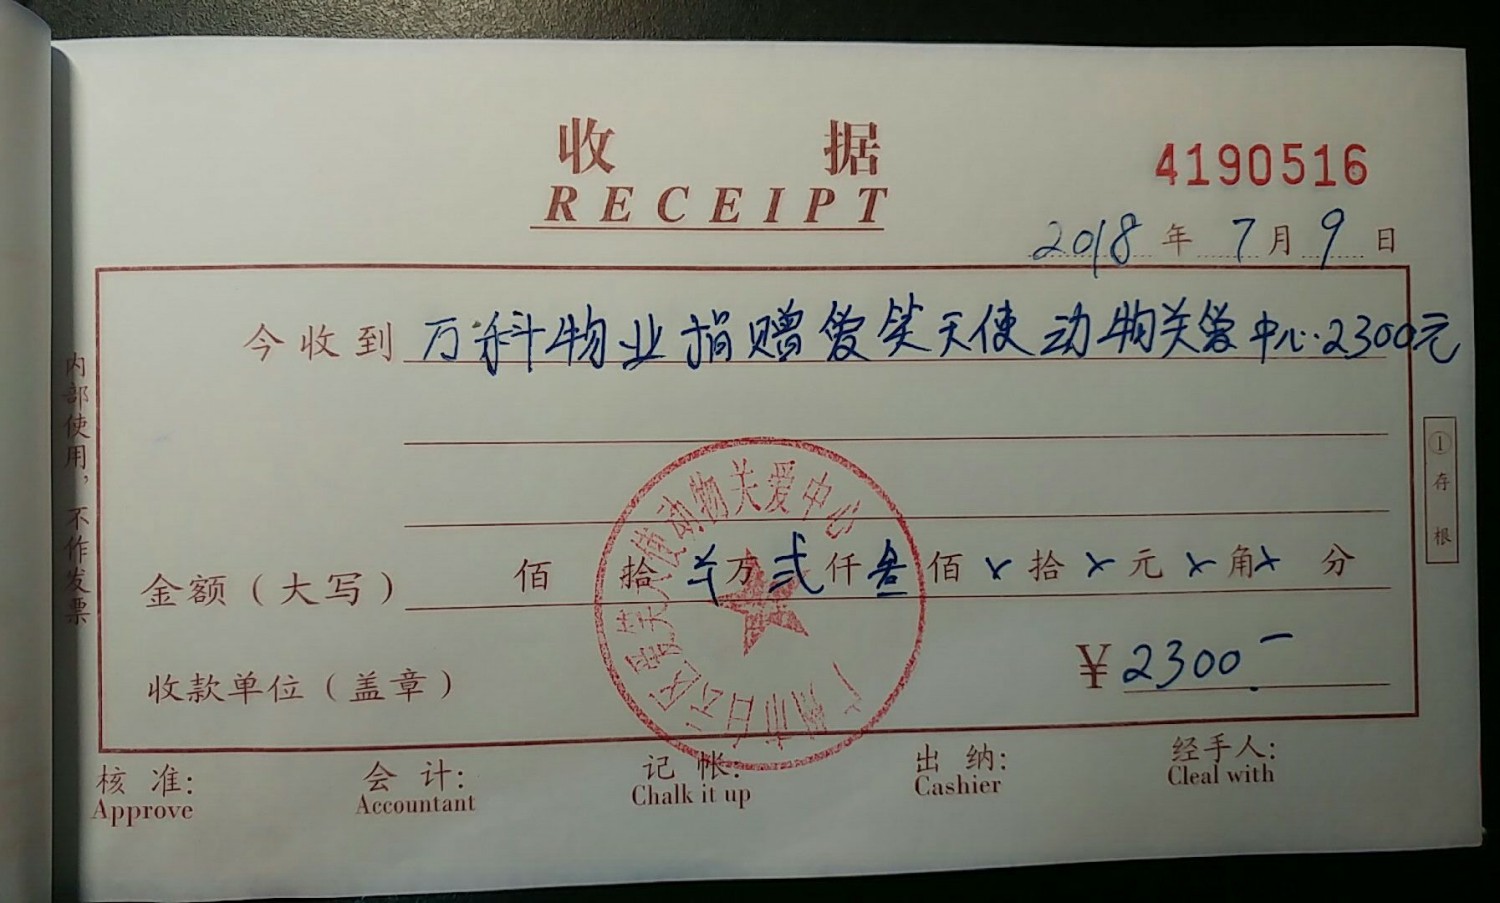 收据
RECEIPT
4190516
2018年7月9日
今收到 万科物业捐赠爱笑天使动物关爱中心.2300元
金额(大写) 佰 拾 万 弍仟叁佰 拾 元 角 分
收款单位(盖章)
¥2300-
广州市白云区爱笑天使动物关爱中心
内部使用,不作发票
①存根
核准: 会计: 记帐: 出纳: 经手人:
Approve Accountant Chalk it up Cashier Cleal with